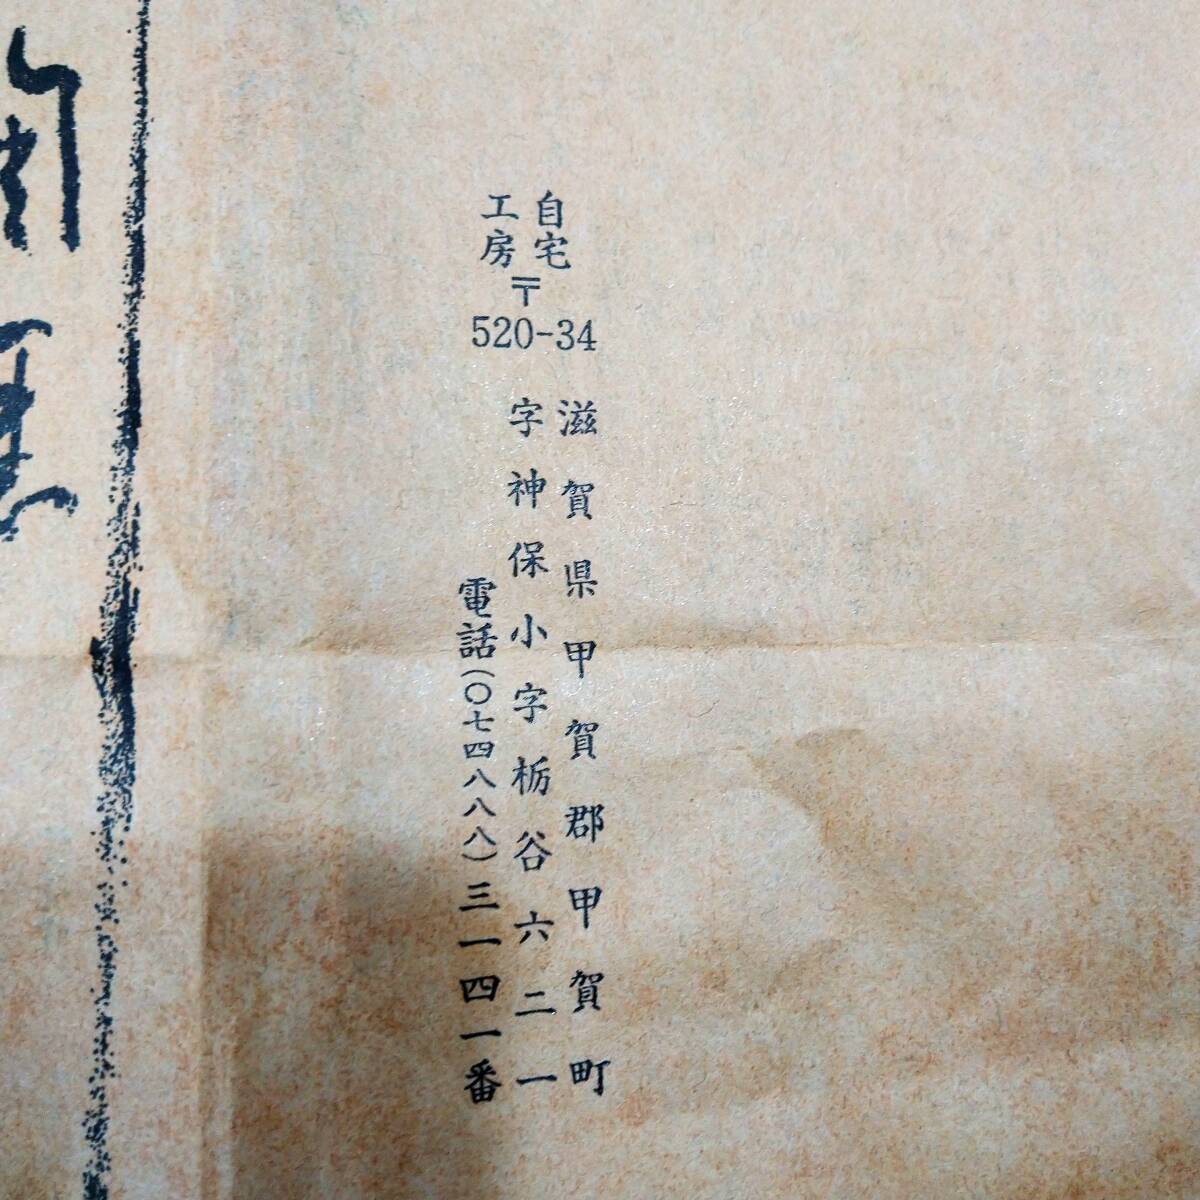 自宅
工房
〒
520-34
滋賀県甲賀郡甲賀町
字神保小字栃谷六二一
電話(〇七四八八八)三一四一番